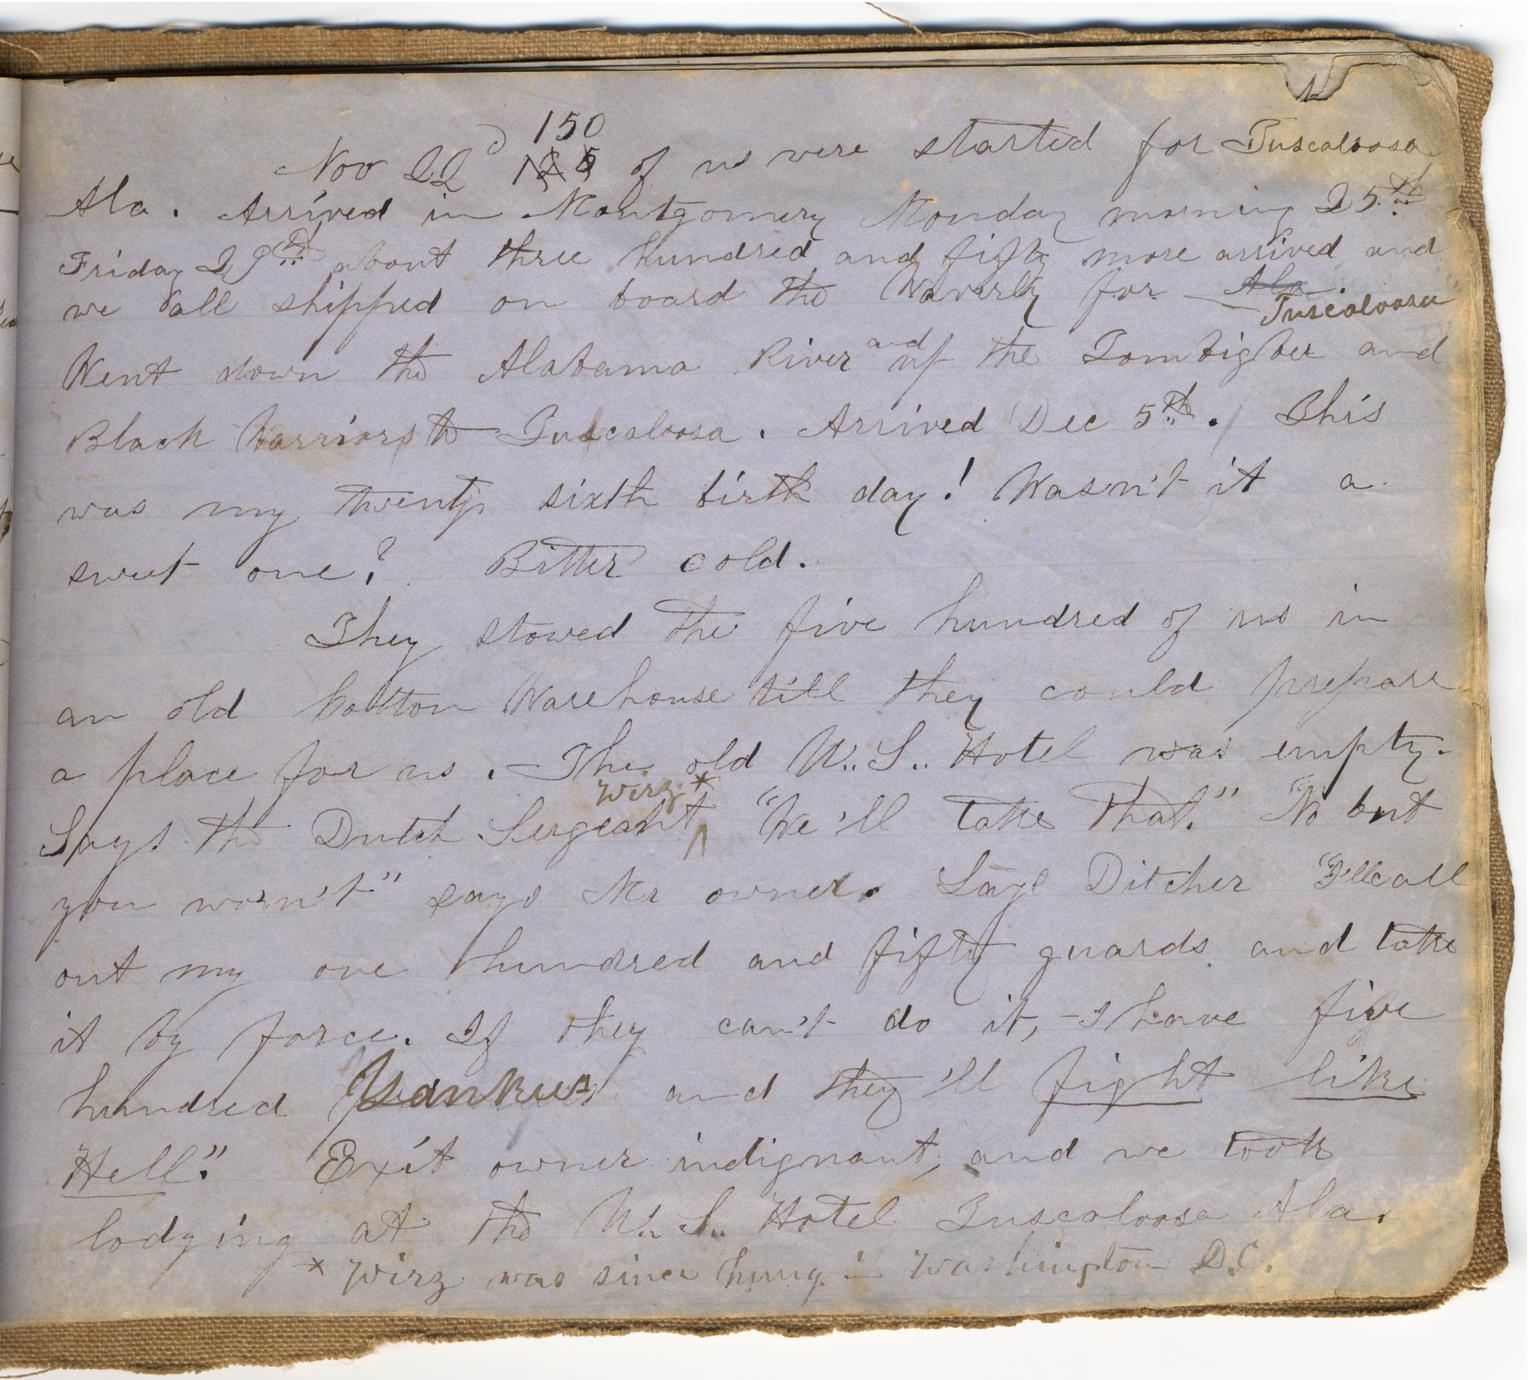 150
Nov 22d 125 of us were started for Tuscaloosa
Ala. Arrived in Montgomery Monday morning 25th
Friday 29th about three hundred and fifty more arrived and
we all shipped on board the Waverly for Ala.
Tuscaloosa
Went down the Alabama River and up the Tombigbee and
Black Warriors to Tuscaloosa. Arrived Dec 5th. This
was my twenty sixth birth day! Wasn't it a
sweet one? Bitter cold.
They stowed the five hundred of us in
an old Cotton Warehouse till they could prepare
a place for us. The old U.S. Hotel was empty.
Wirz *
Says the Dutch Sergeant ^ "We'll take That." "No but
you won't" says Mr owner. Says Ditcher "I'll call
out my one hundred and fifty guards and take
it by force. If they can't do it, I have five
hundred Yankees and they'll fight like
Hell". Exit owner indignant, and we took
lodging at the U.S. Hotel Tuscaloosa Ala.
* Wirz was since hung in Washington D.C.